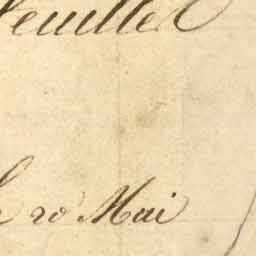 feuillet
20 Mai